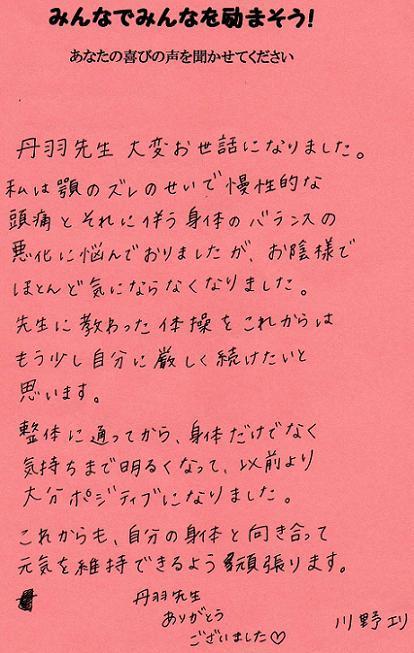 みんなでみんなを励まそう!
あなたの喜びの声を聞かせてください
丹羽先生 大変お世話になりました。
私は顎のズレのせいで慢性的な
頭痛とそれに伴う身体のバランスの
悪化に悩んでおりましたが、お陰様で
ほとんど気にならなくなりました。
先生に教わった体操をこれからは
もう少し自分に厳しく続けたいと
思います。
整体に通ってから、身体だけでなく
気持ちまで明るくなって、以前より
大分ポジティブになりました。
これからも、自分の身体と向き合って
元気を維持できるよう頑張ります。
丹羽先生
ありがとう
ございました♡
川野エリ